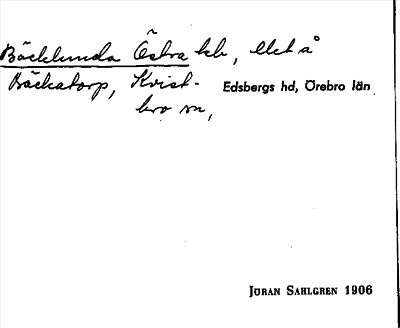 Bäcklunda Östra kb, del å
Bäckatorp, Kvist- Edsbergs hd, Örebro län
bro sn,
JÖRAN SAHLGREN 1906